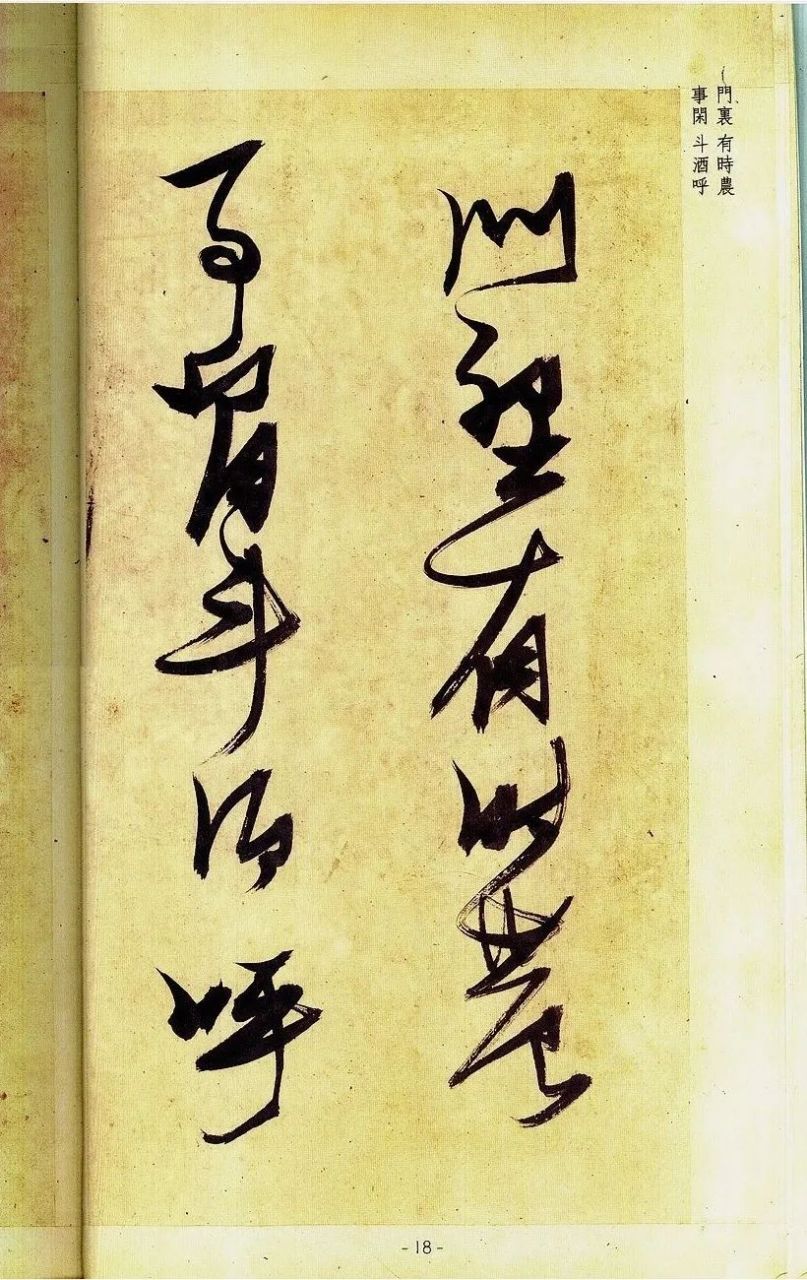 門裏 有時農
事閑 斗酒呼
門裏有時農
事閑斗酒呼
-18-